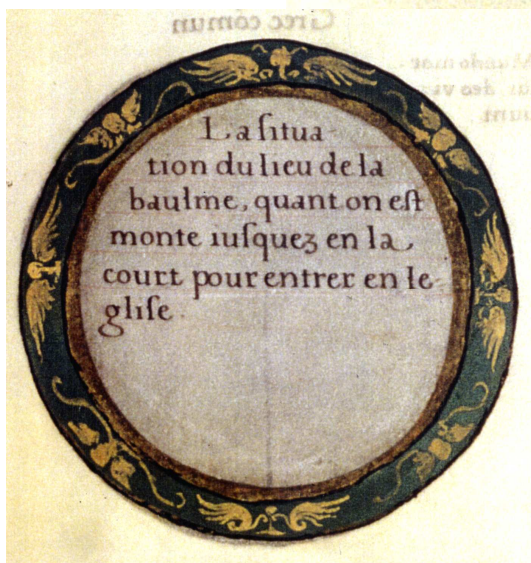 Grec cōmun
Mundo mar
La situa
tion du lieu de la
baulme, quant on est
monte iusquez en la
court pour entrer en le
glise